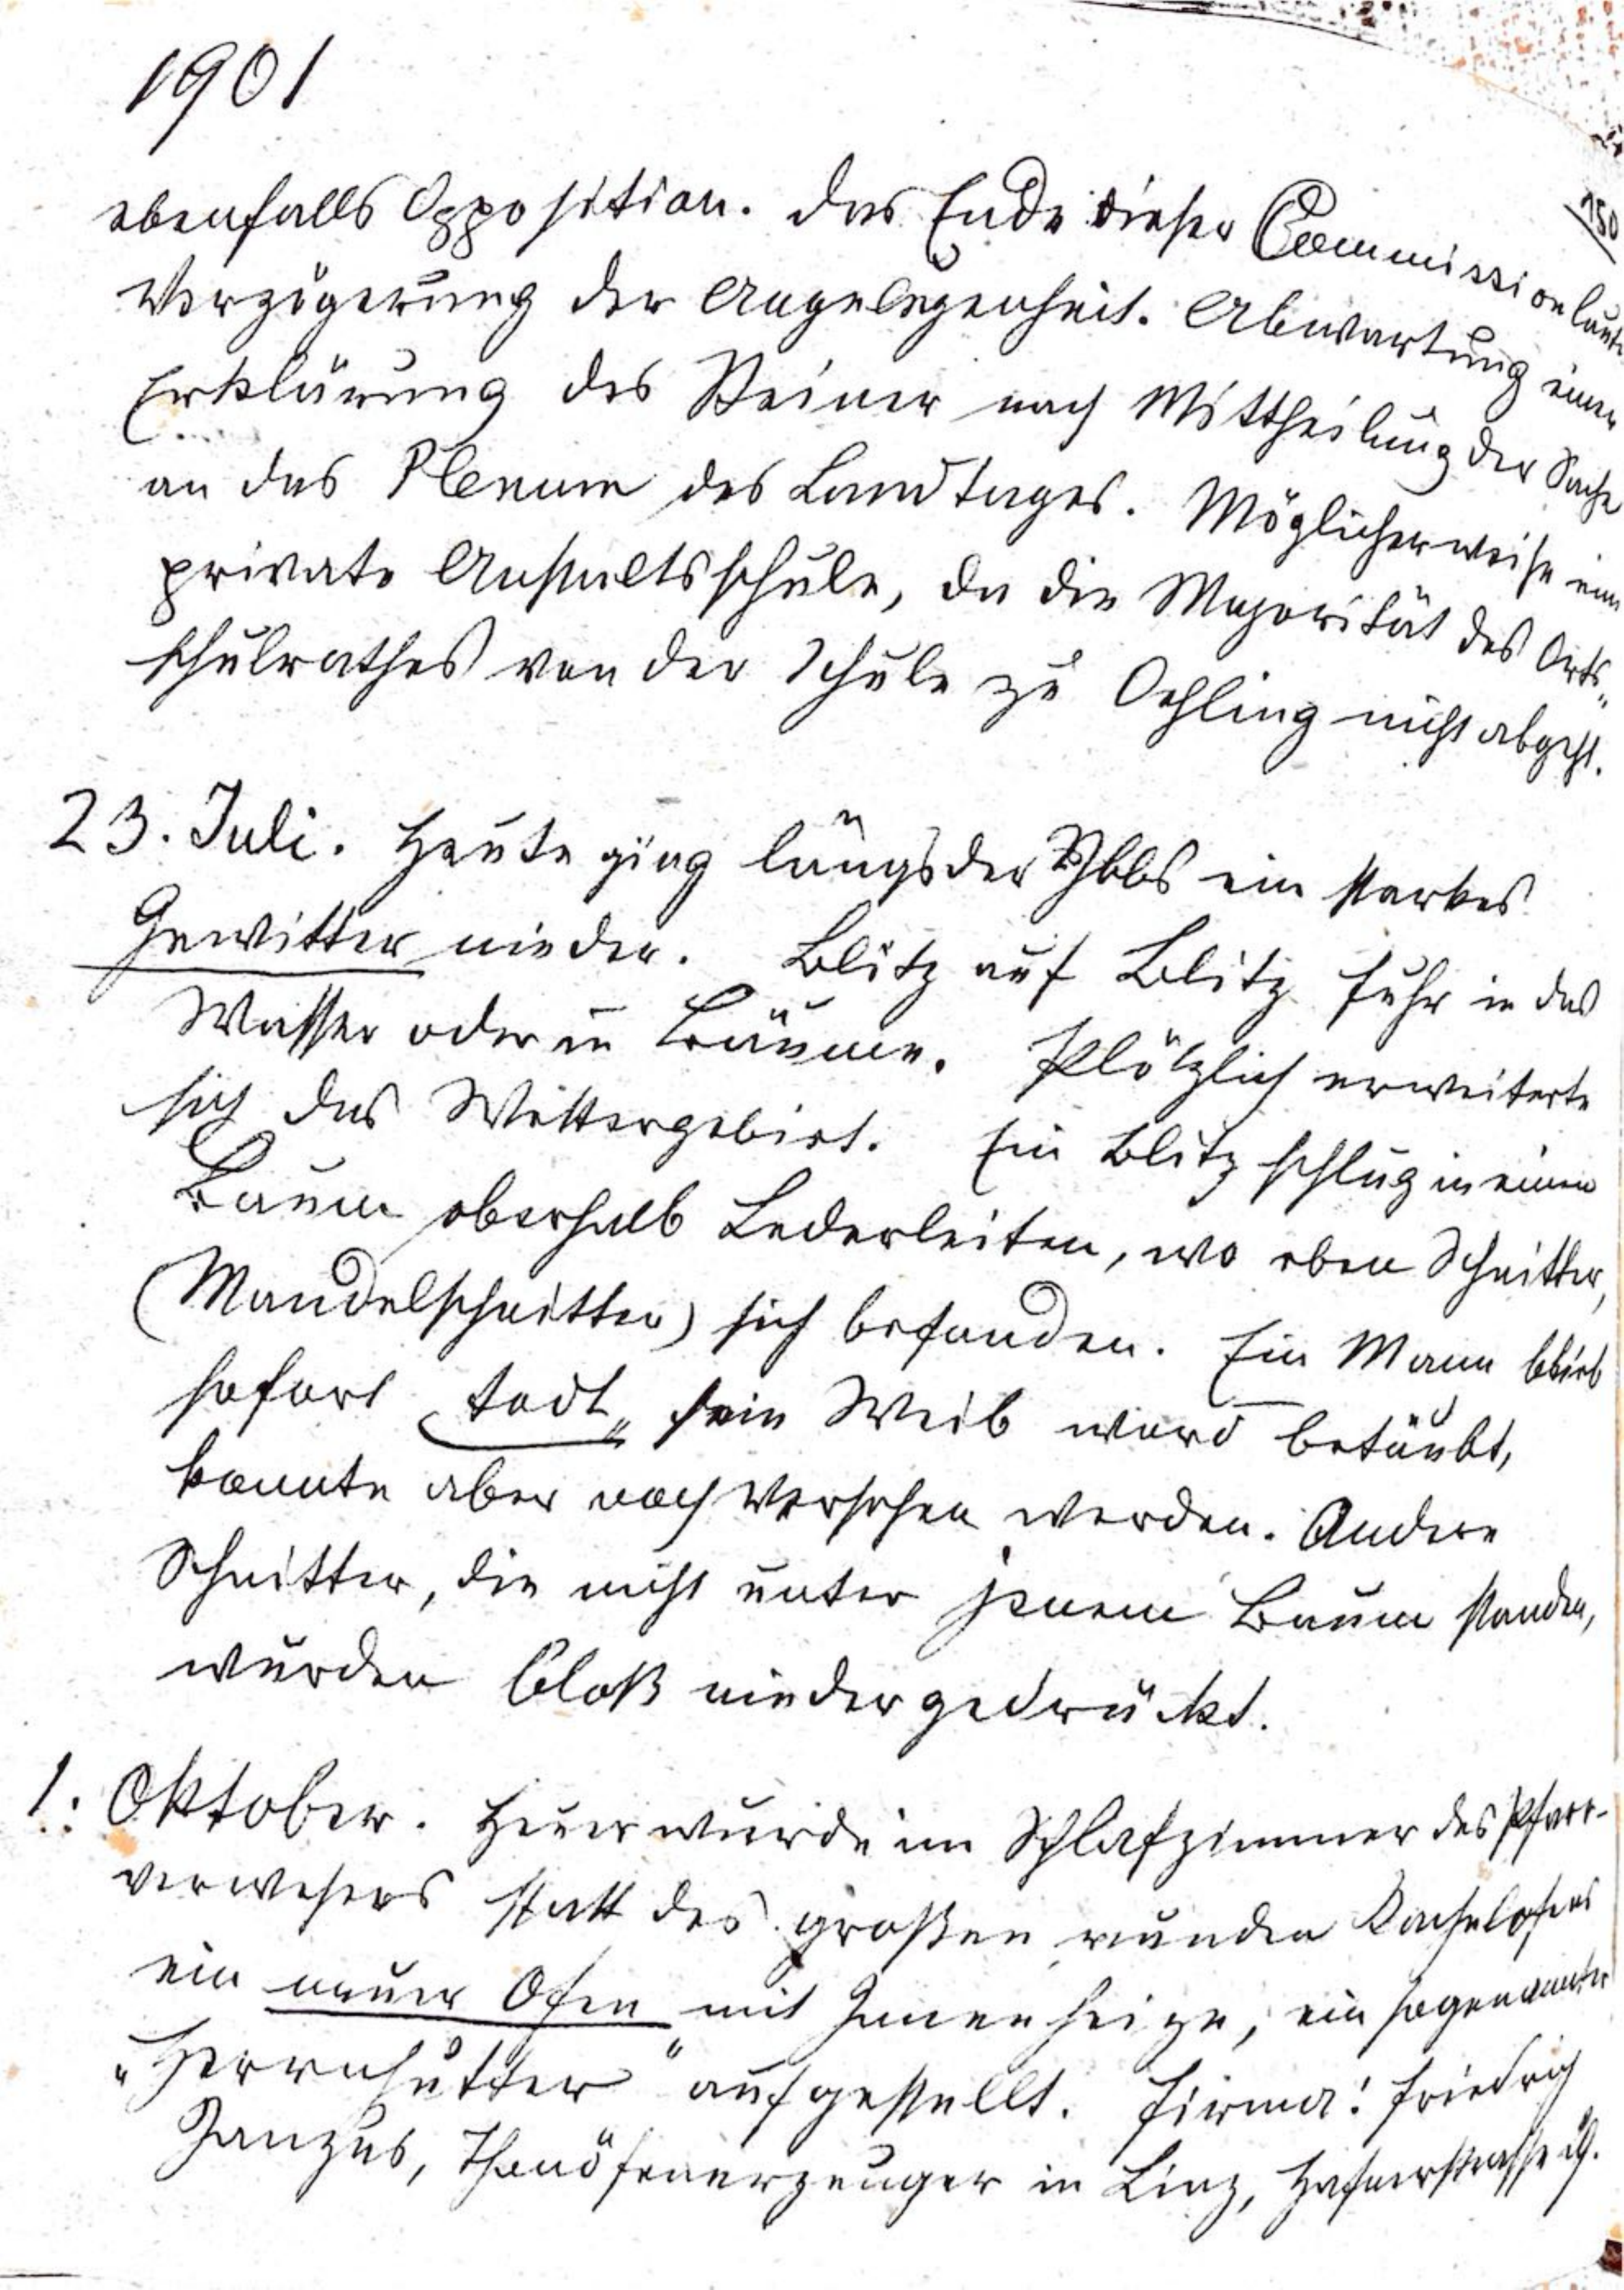 1901
150
ebenfalls Opposition. Das Ende dieser Commission laute
Verzögerung der Angelegenheit. Abwartung einer
Erklärung des Steiner nach Mittheilung der Sache
an das Plenum des Landtages. Möglicherweise eine
private Anstaltsschule, da die Majorität des Orts„
schulrathes von der Schule zu Oehling nicht abgeht.
23. Juli. Heute ging längs der Ybbs ein starkes
Gewitter nieder. Blitz auf Blitz fuhr in das
Wasser oder in Bäume. Plötzlich erweiterte
sich das Wettergebiet. Ein Blitz schlug in einen
Baum oberhalb Lederleiten, wo eben Schnitter,
(Mandelschnitter) sich befanden. Ein Mann blieb
sofort todt„ sein Weib ward betäubt,
konnte aber noch versehen werden. Andere
Schnitter, die nicht unter jenem Baum standen,
wurden bloß niedergedrückt.
1. Oktober. Heuer wurde im Schlafzimmer des Pfarr-
verwesers statt des großen runden Kachelofens
ein neuer Ofen mit Innenheize, ein sogenannter
„Herrnhutter" aufgestellt. Firma: Friedrich
, Thonöfenerzeuger in Linz, Hafnerstrasse